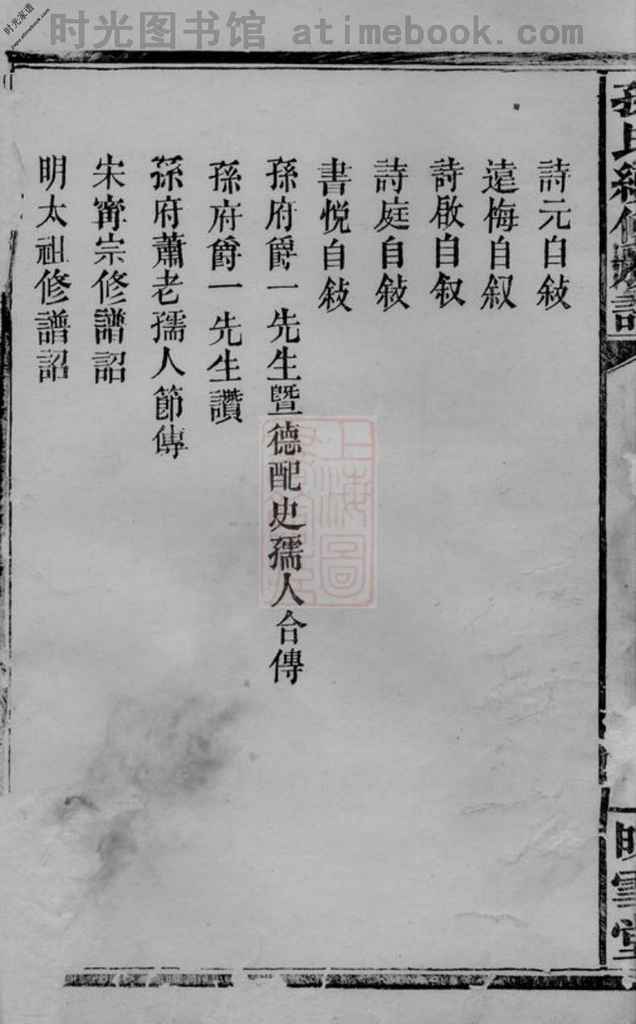 时光图书馆 atimebook.com
时光家谱
孫氏續修家譜
映雪堂
詩元自敍
遠梅自叙
詩啟自叙
詩庭自敍
書悅自敍
孫府爵一先生暨德配史孺人合傳
孫府爵一先生讚
孫府蕭老孺人節傳
宋甯宗修譜詔
明太祖修譜詔
上海圖